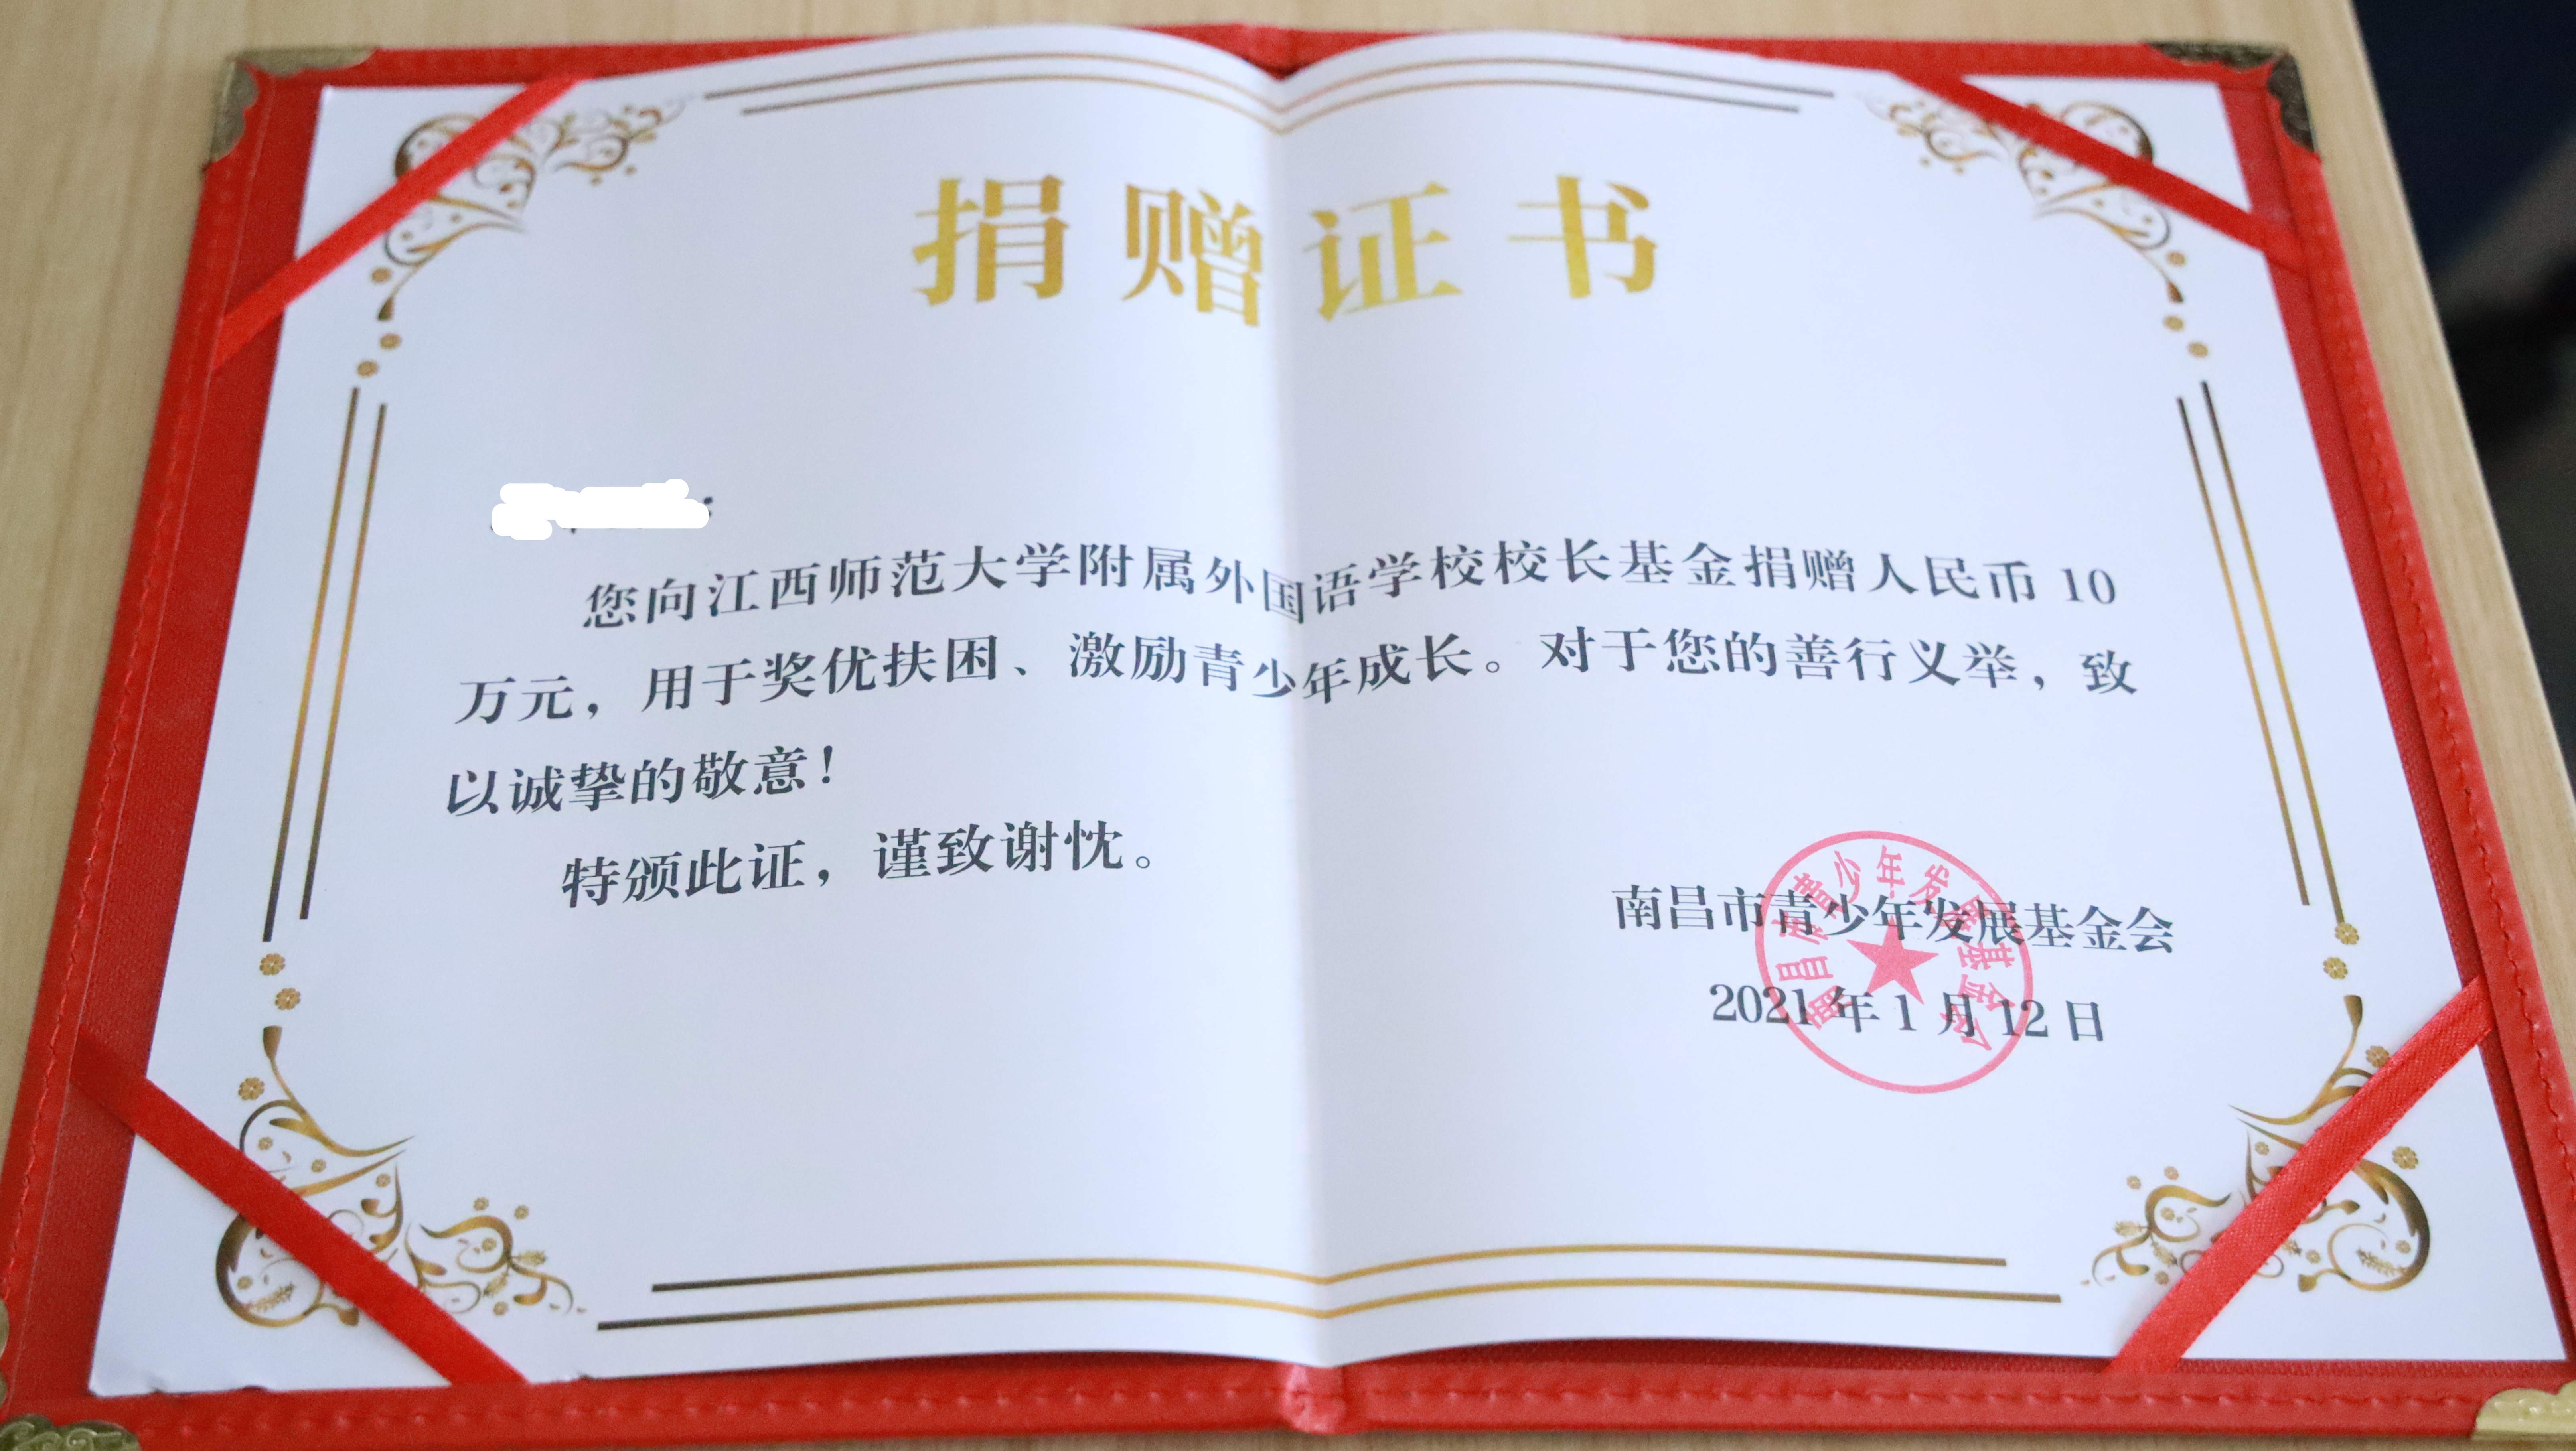 捐赠证书
您向江西师范大学附属外国语学校校长基金捐赠人民币 10
万元，用于奖优扶困、激励青少年成长。对于您的善行义举，致
以诚挚的敬意！
特颁此证，谨致谢忱。
南昌市青少年发展基金会
2021 年 1 月 12 日
南昌市青少年发展基金会